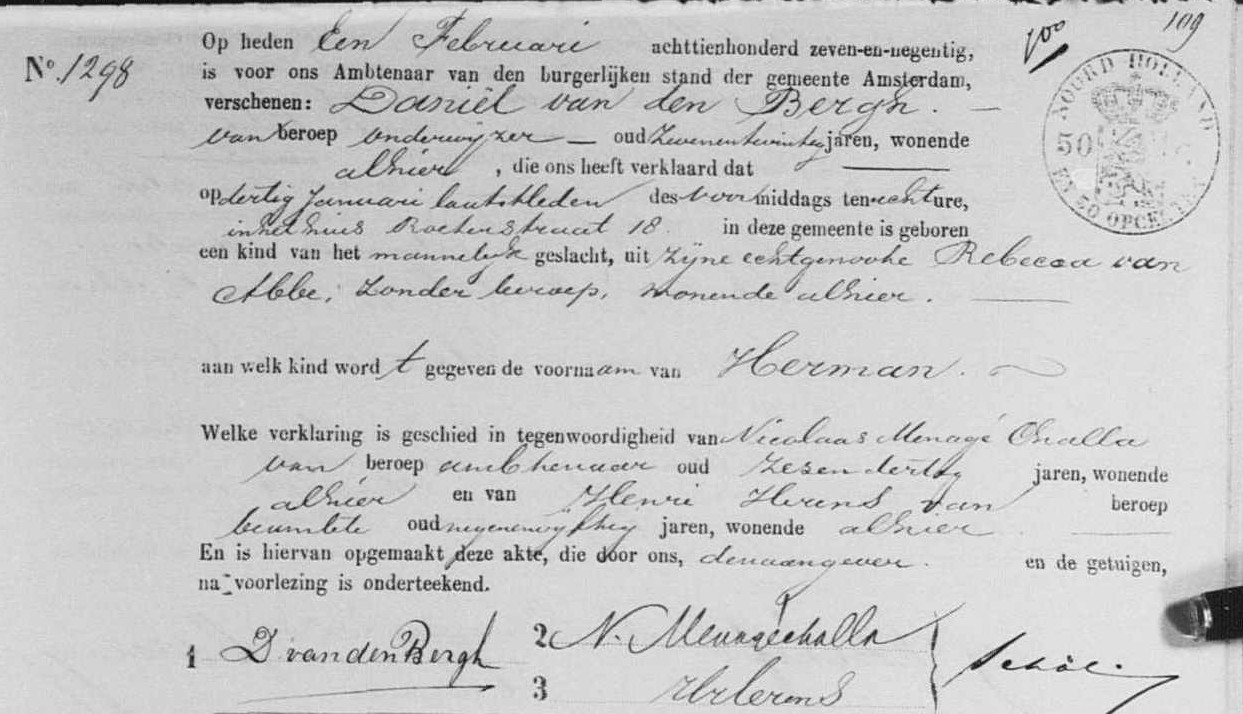 109
100
Op heden Een Februari achttienhonderd zeven-en-negentig,
No. 1298
is voor ons Ambtenaar van den burgerlijken stand der gemeente Amsterdam,
verschenen: Daniël van den Bergh.
van beroep onderwijzer — oud zevenentwintig jaren, wonende
alhier, die ons heeft verklaard dat
op dertig Januari laatstleden des voormiddags ten acht ure,
in het huis Roetersstraat 18. in deze gemeente is geboren
een kind van het mannelijk geslacht, uit zijne echtgenoote Rebecca van
Abbe, zonder beroep, wonende alhier.
aan welk kind wordt gegeven de voornaam van Herman.
Welke verklaring is geschied in tegenwoordigheid van Nicolaas Menagé Challa
van beroep ambtenaar oud zesendertig jaren, wonende
alhier en van Henri van beroep
beambte oud jaren, wonende alhier
En is hiervan opgemaakt deze akte, die door ons, den aangever. en de getuigen,
na voorlezing is onderteekend.
1 D. van den Bergh 2 N. Menagé Challa
3
NOORD HOLLAND
50
EN 50 OPCENTEN